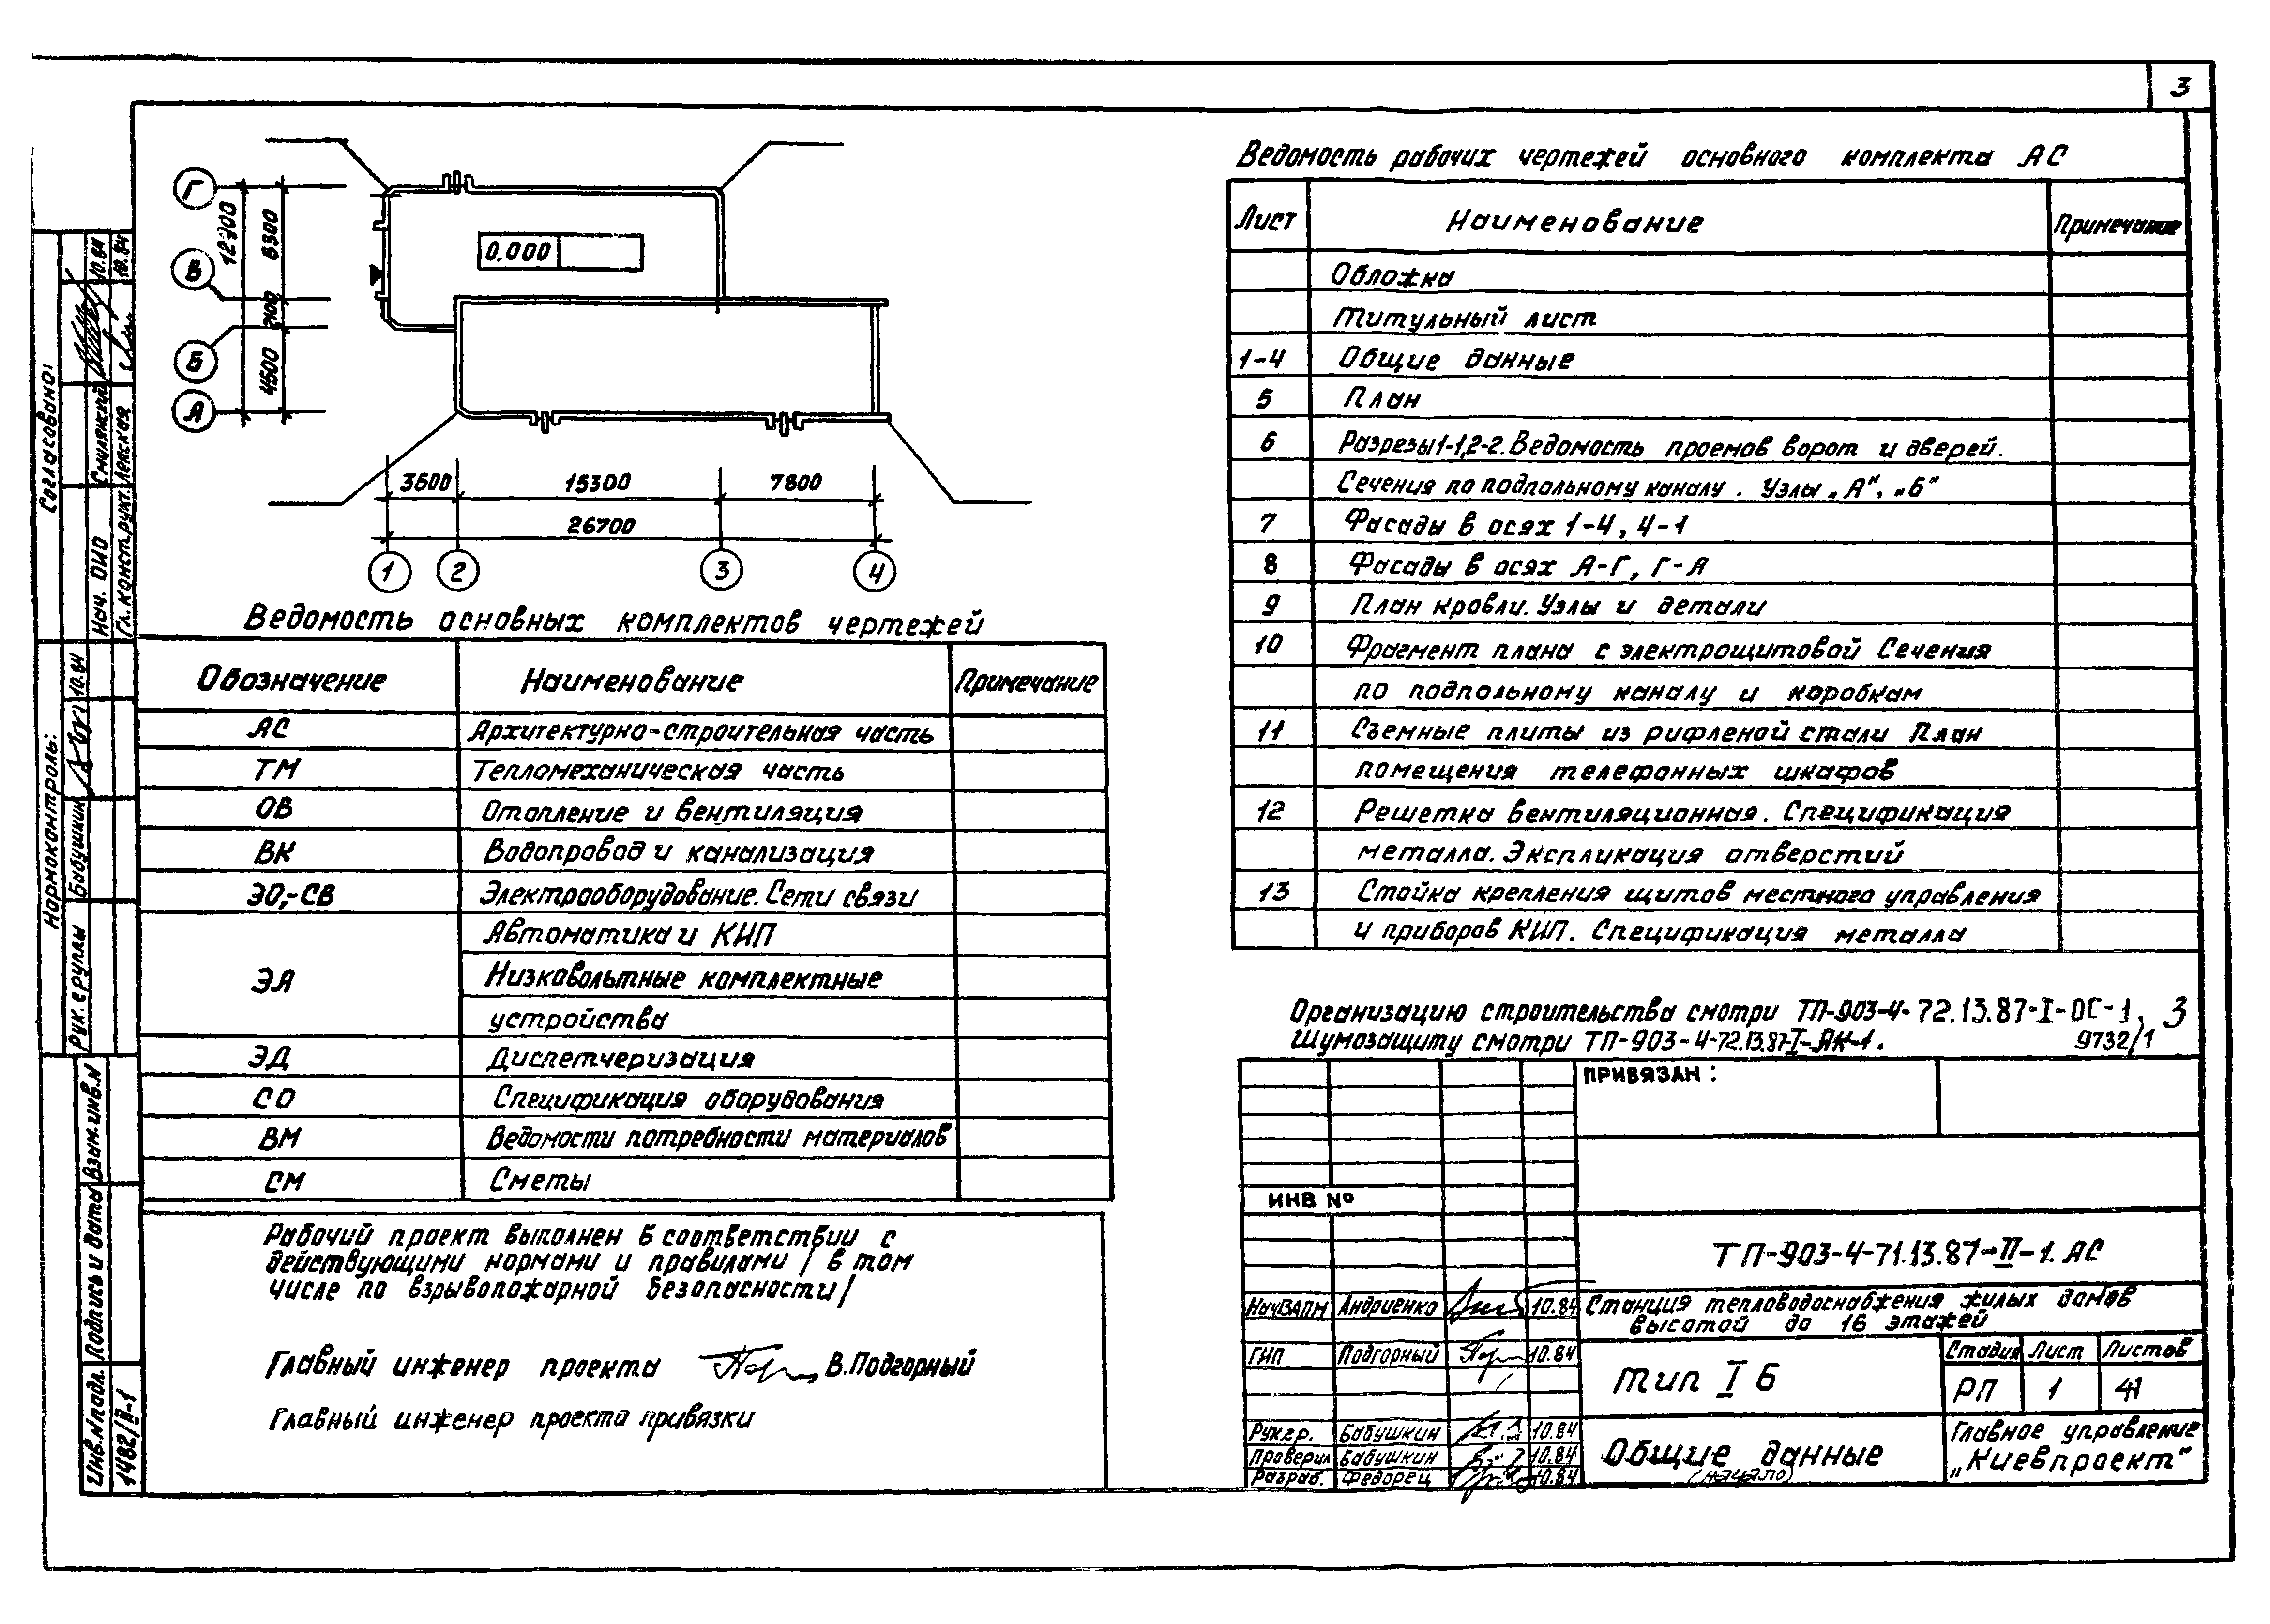 3
Г
В
Б
А
6300
2100
4500
0.000
3600
15300
7800
26700
1
2
3
4
Ведомость основных комплектов чертежей
Обозначение Наименование Примечание
АС Архитектурно-строительная часть
ТМ Тепломеханическая часть
ОВ Отопление и вентиляция
ВК Водопровод и канализация
ЭО,-СВ Электрооборудование. Сети связи
ЭА Автоматика и КИП
Низковольтные комплектные
устройства
ЭД Диспетчеризация
СО Спецификация оборудования
ВМ Ведомости потребности материалов
СМ Сметы
Рабочий проект выполнен в соответствии с
действующими нормами и правилами / в том
числе по взрывопожарной безопасности/
Главный инженер проекта В.Подгорный
Главный инженер проекта привязки
Ведомость рабочих чертежей основного комплекта АС
Лист Наименование Примечание
Обложка
Титульный лист
1-4 Общие данные
5 План
6 Разрезы 1-1, 2-2. Ведомость проемов ворот и дверей.
Сечения по подпольному каналу. Узлы „А“, „Б“
7 Фасады в осях 1-4, 4-1
8 Фасады в осях А-Г, Г-А
9 План кровли. Узлы и детали
10 Фрагмент плана с электрощитовой Сечения
по подпольному каналу и коробкам
11 Съемные плиты из рифленой стали План
помещения телефонных шкафов
12 Решетка вентиляционная. Спецификация
металла. Экспликация отверстий
13 Стойка крепления щитов местного управления
и приборов КИП. Спецификация металла
Организацию строительства смотри ТП-903-4-72.13.87-I-ОС-1. 3
Шумозащиту смотри ТП-903-4-72.13.87-I-АК-1. 9732/1
ПРИВЯЗАН:
ИНВ №
ТП-903-4-71.13.87-II-1.АС
Нач ЗАПМ Андриенко 10.84
Станция тепловодоснабжения жилых домов
высотой до 16 этажей
ГИП Подгорный 10.84
тип I Б
Стадия Лист Листов
РП 1 41
Рук.гр. Бабушкин 10.84
Проверил Бабушкин 10.84
Разраб. Федорец 10.84
Общие данные
(начало)
Главное управление
„Киевпроект“
Согласовано:
Нач. ОИО Смилянский 10.84
Гл. конструкт. 10.84
Нормоконтроль:
Рук. группы Бабушкин 10.84
Взам.инв.N
Подпись и дата
Инв.N подл.
1482/II-1